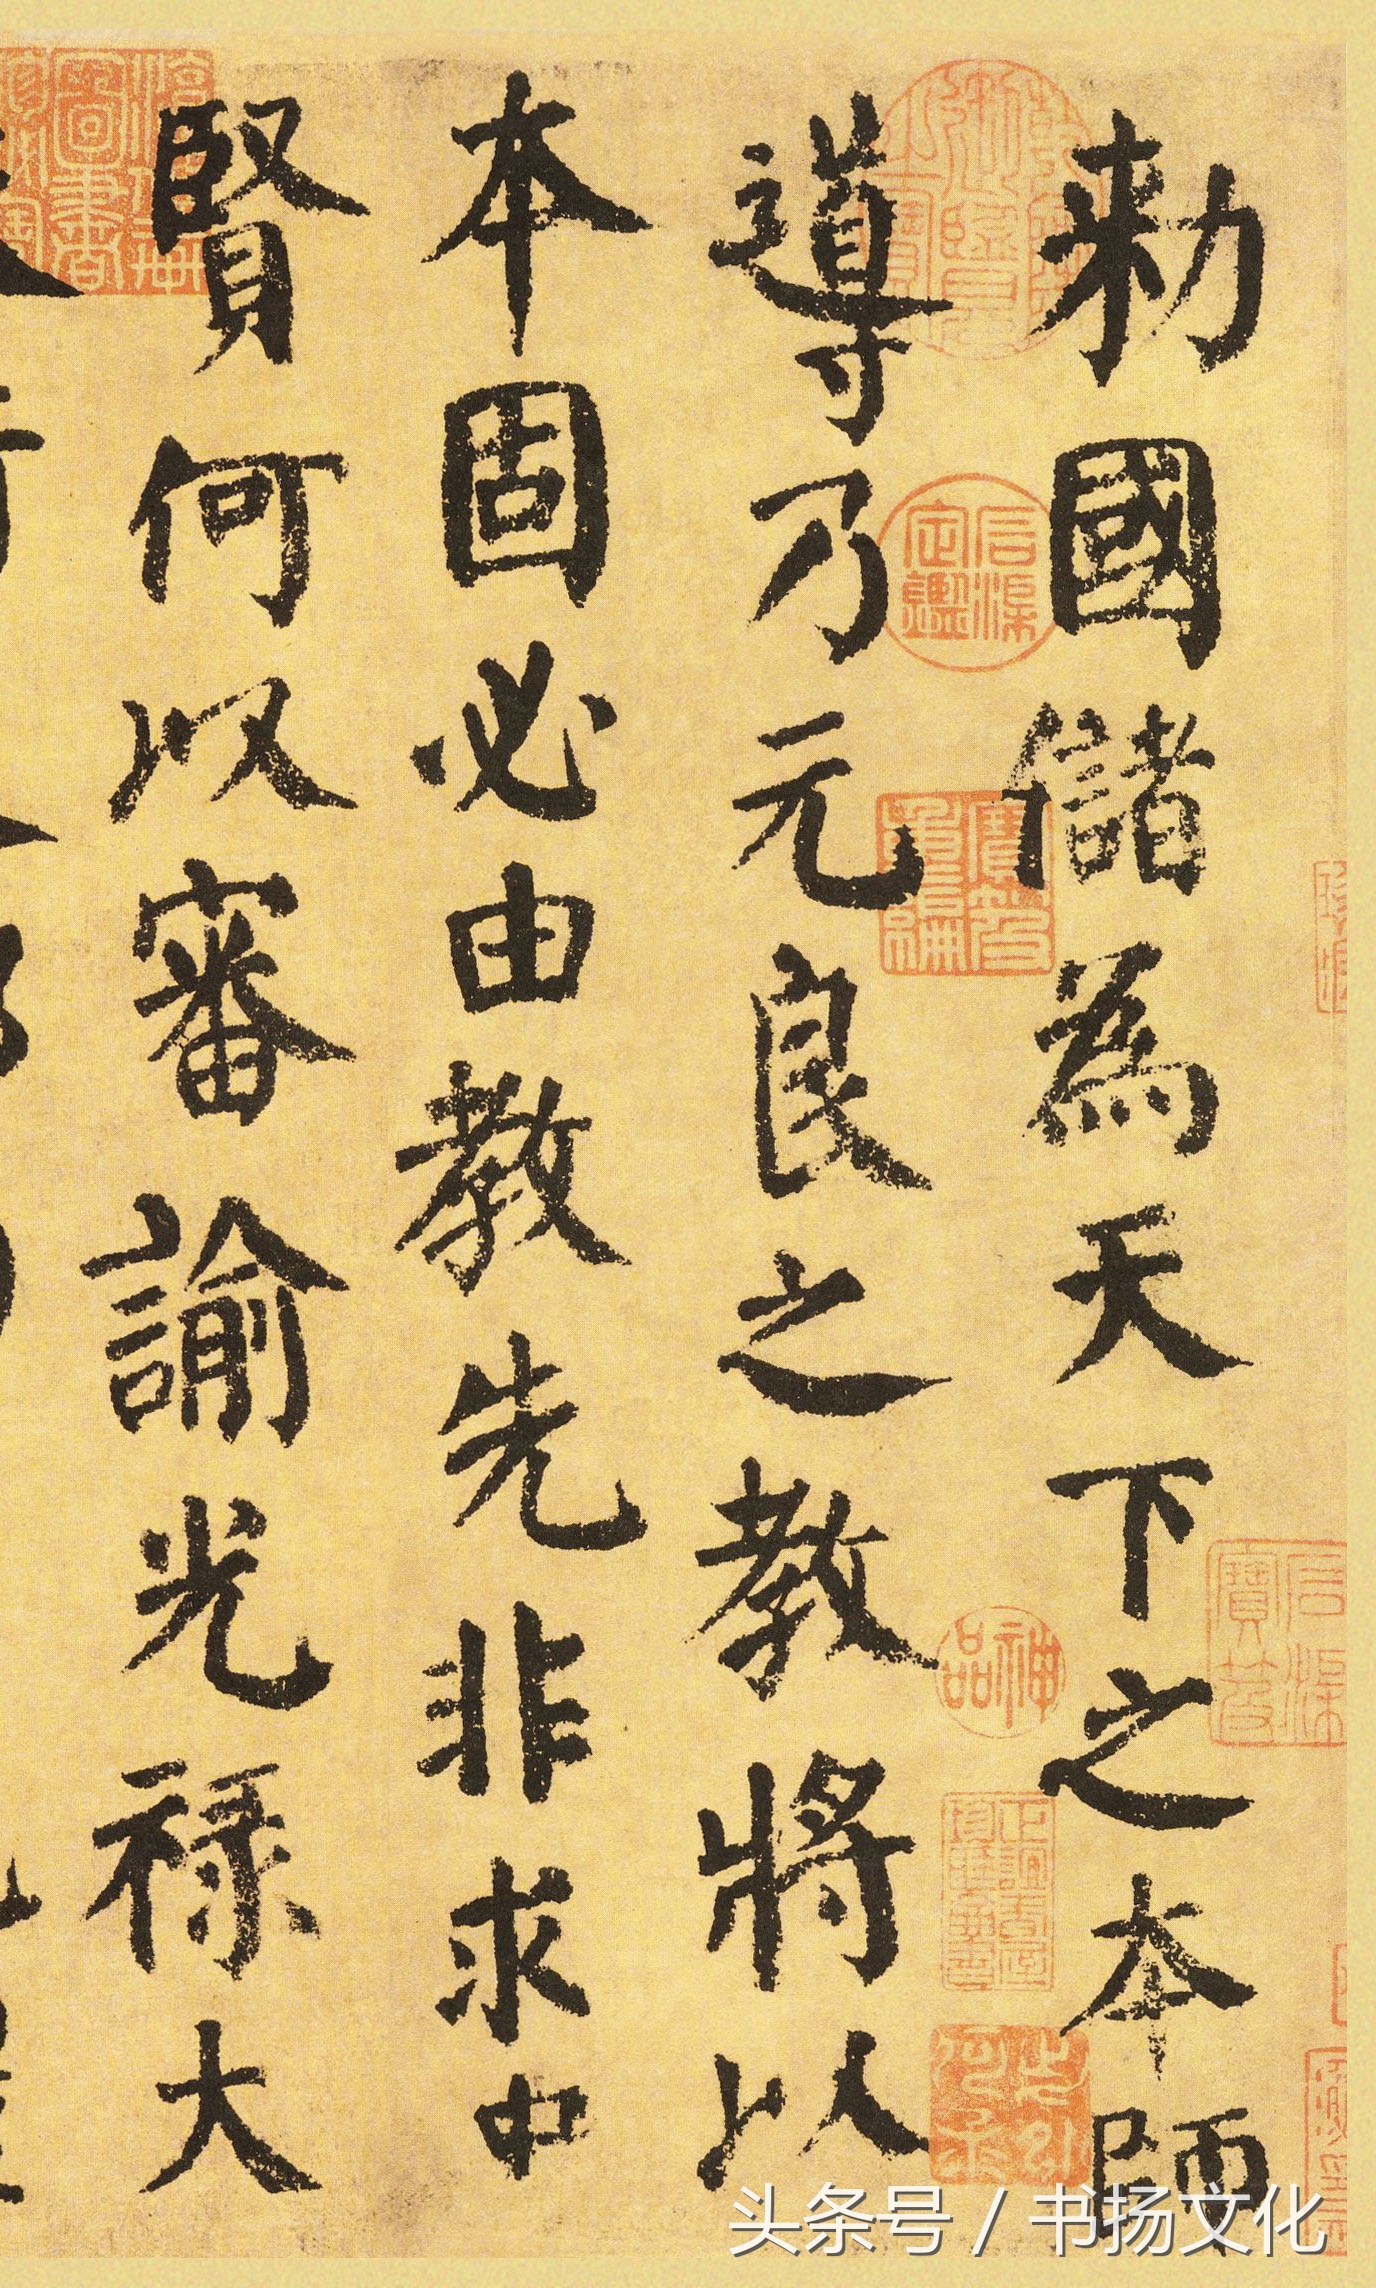 勅國儲為天下之本師
導乃元良之教將以
本固必由教先非求中
賢何以審諭光祿大
神品
头条号 / 书扬文化